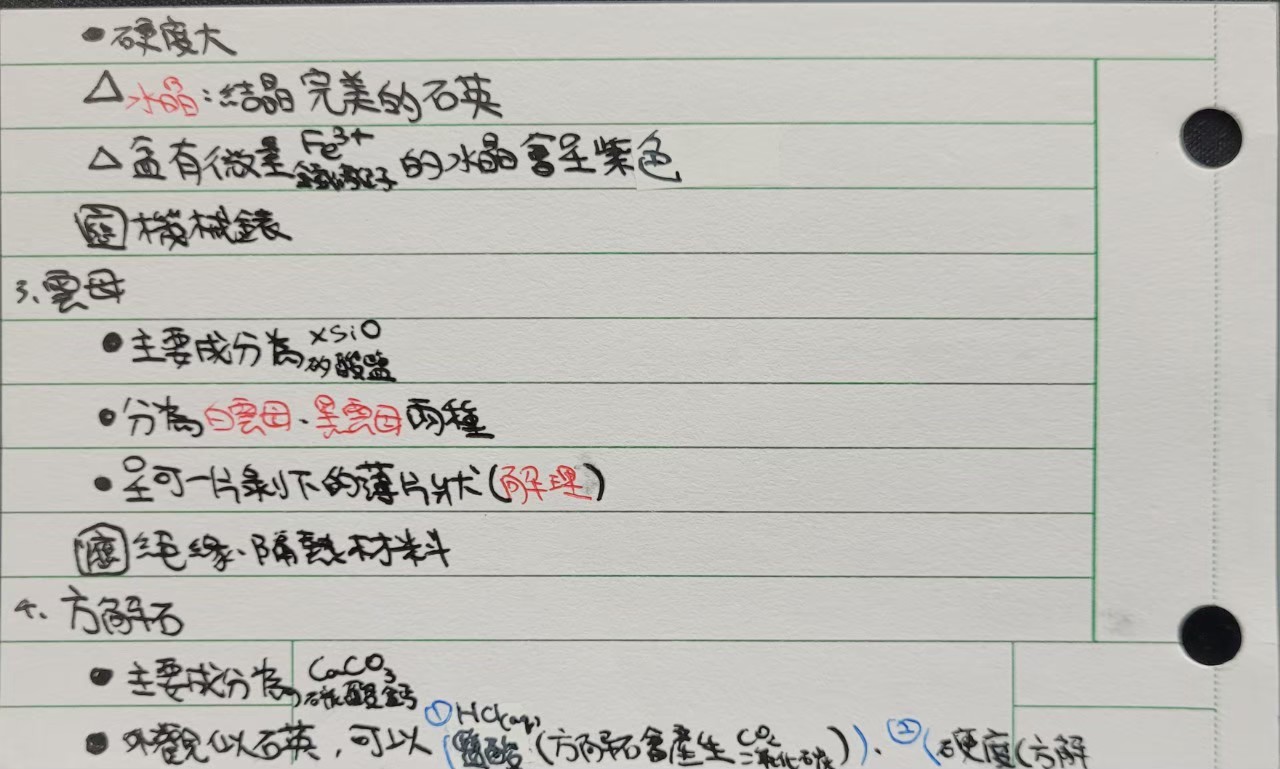 • 硬度大
△水晶:結晶完美的石英
△ 含有微量 Fe³⁺ 鐵離子 的水晶會呈紫色
應 機械錶
3、雲母
• 主要成分為 XSiO 矽酸鹽
• 分為白雲母、黑雲母兩種
• 呈可一片剝下的薄片狀(解理)
應 絕緣、隔熱材料
4、方解石
• 主要成分為 CaCO₃ 碳酸鈣
• 外觀似石英,可以 ①(HCl(aq) 鹽酸 (方解石會產生 CO₂ 二氧化碳))、②(硬度(方解